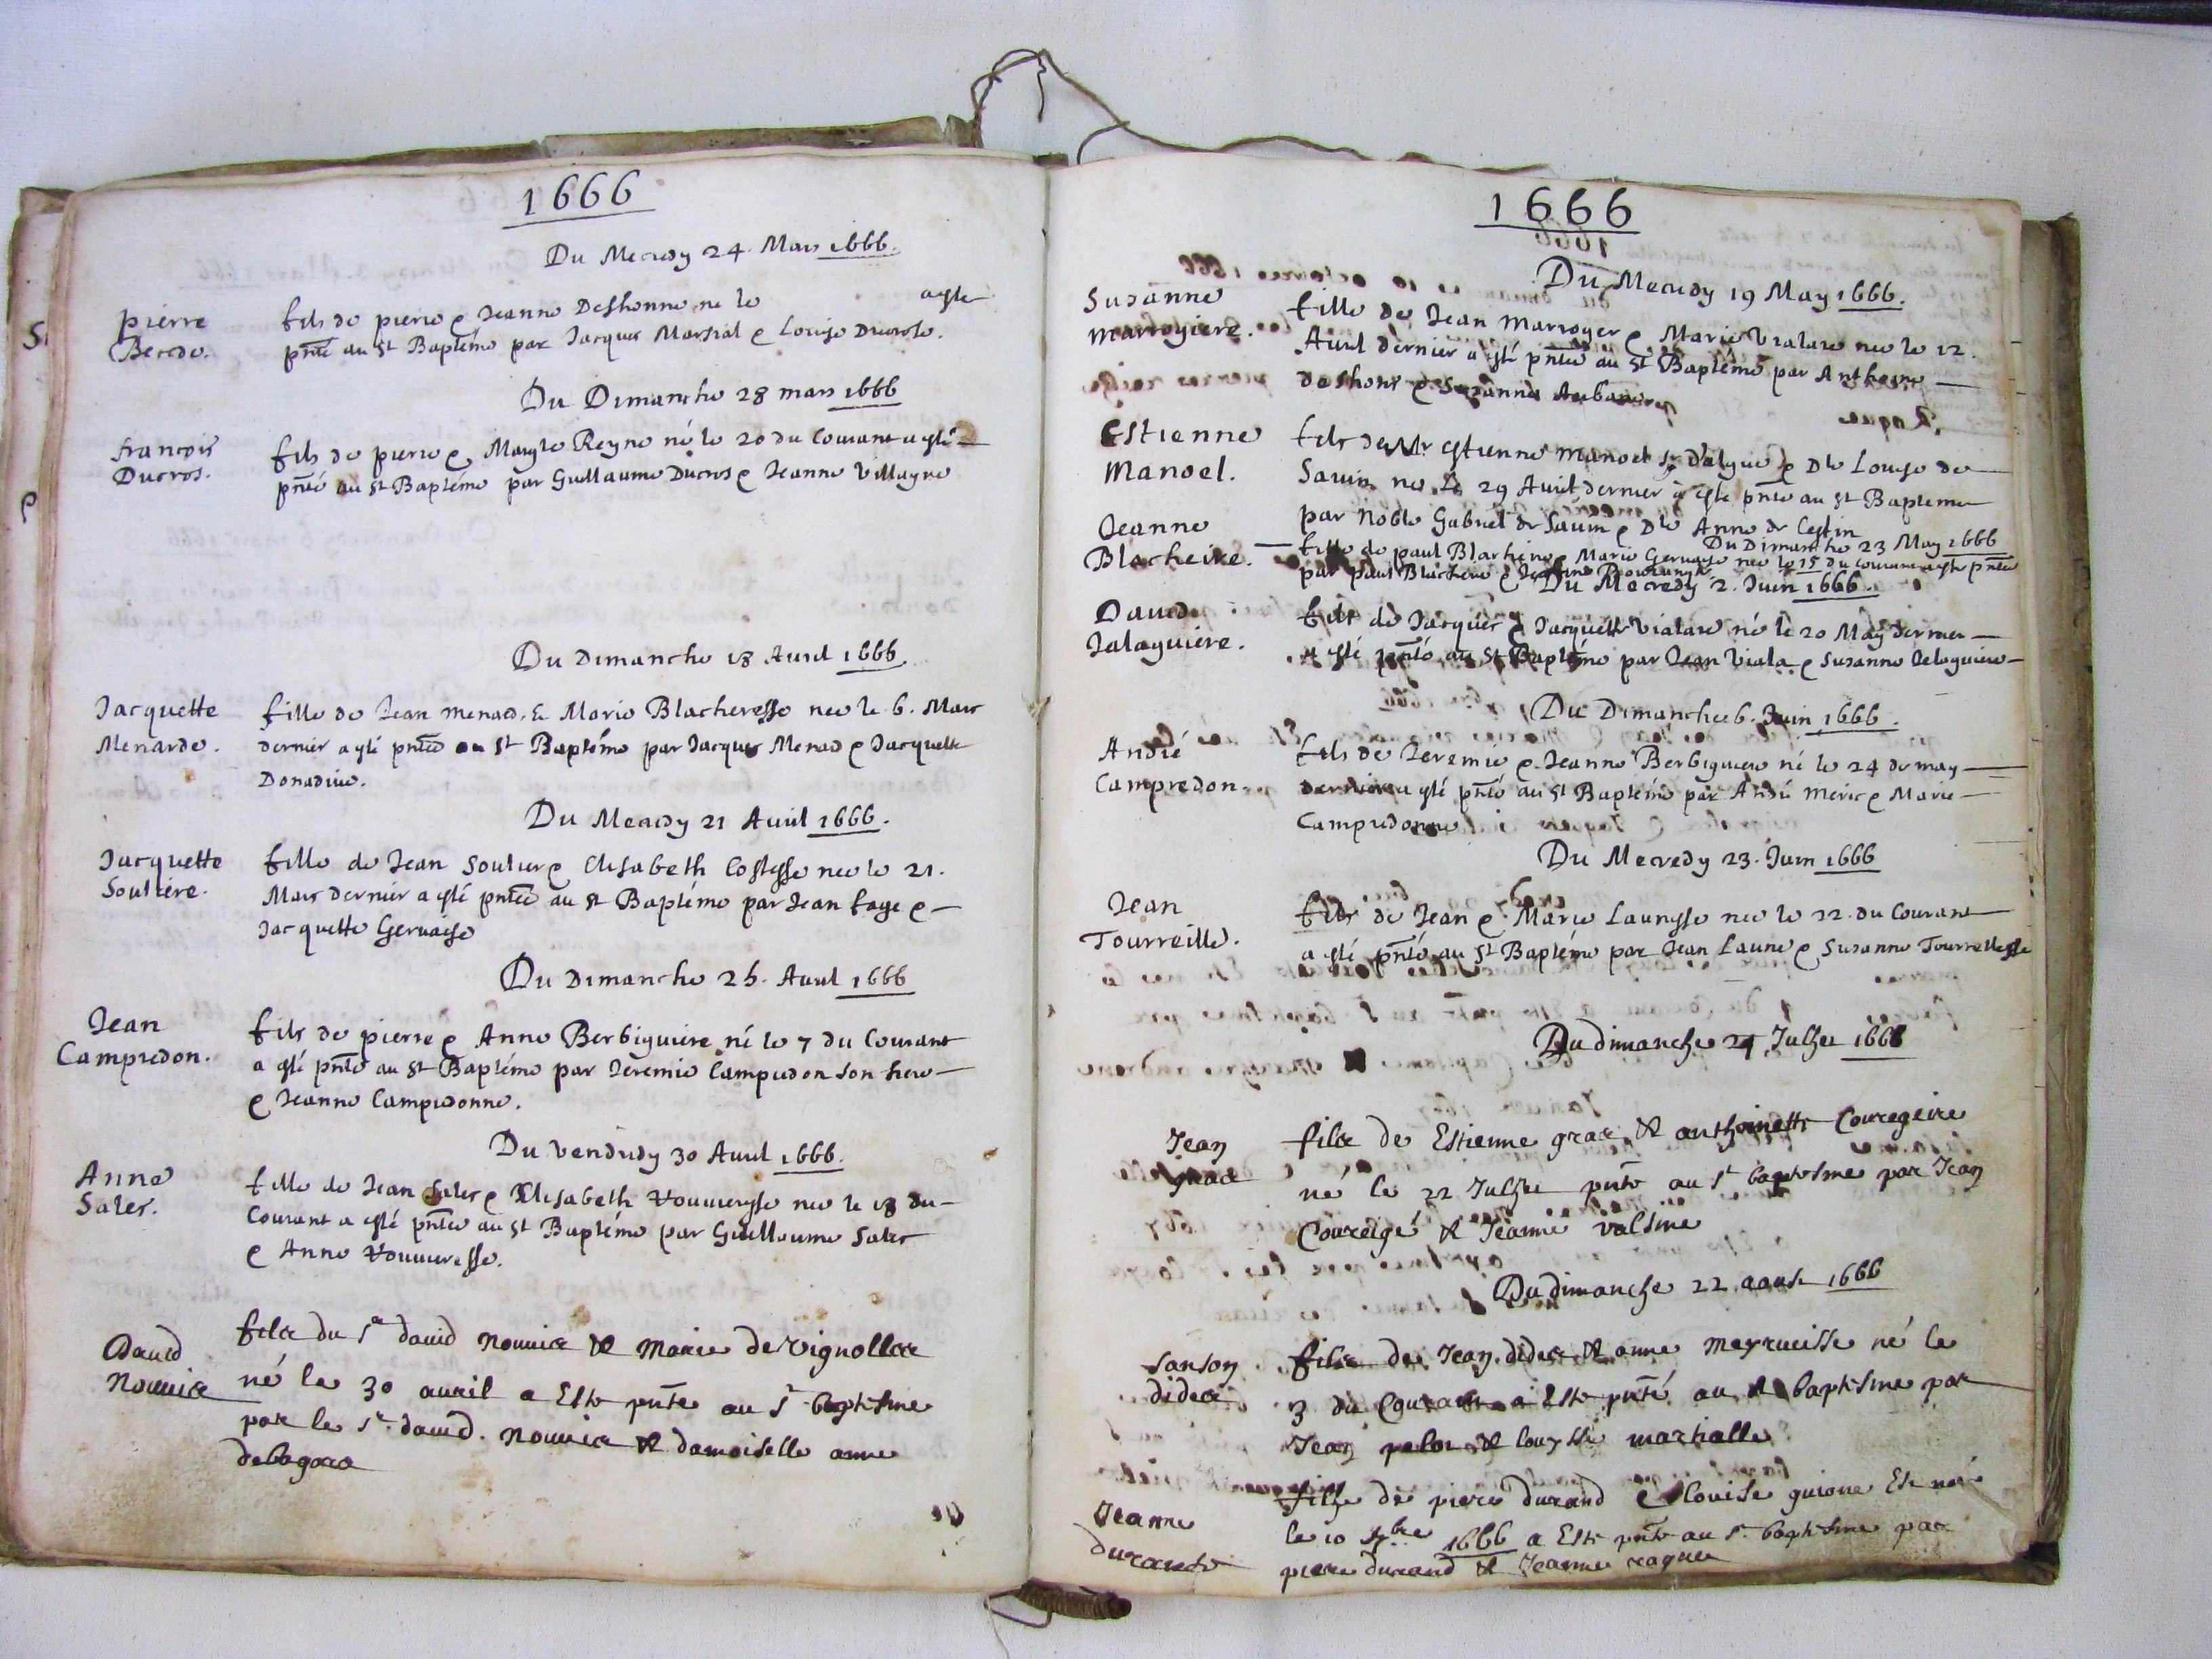 1666
Du Mecredy 24. Mars 1666.
pierre
Berede.
fils de pierre & Jeanne Deshonne né le a esté
pnté au St Baptéme par Jacques Martial & Louise
Du Dimanche 28 mars 1666
francois
Ducros.
fils de pierre & Margte Reyne né le 20 du Courant a esté
pnté au St Baptéme par Guillaume Ducros & Jeanne Villagne
Du Dimanche 18 Avril 1666
Jacquette
Menarde.
fille de Jean Menard, & Marie Blacheresse nee le 6. Mars
dernier a esté pntée au St Baptéme par Jacques Menard & Jacquette
Donadive.
Du Mecredy 21 Avril 1666.
Jacquette
Souliere.
fille de Jean Soulier & Elisabeth Costesse nee le 21.
Mars dernier a esté pntée au St Baptéme par Jean Fage &
Jacquette Gervaise
Du Dimanche 25. Avril 1666
Jean
Campredon.
fils de pierre & Anne Berbiguiere né le 7 du Courant
a esté pnté au St Baptéme par Jeremie Campredon son frere
& Jeanne Campredonne.
Du Vendredy 30 Avril 1666.
Anne
Sales.
fille de Jean Sales & Elisabeth Vouvieresse nee le 18 du
Courant a esté pntée au St Baptéme par Guillaume Sales
& Anne Vouvieresse.
David
Nouvis
fils du Sr david Nouvis & Marie de Vignolles
né le 30 auril a Esté pnté au St baptisme
par le Sr. david. Nouvis & damoiselle anne
debagars
1666
Du Mecredy 19 May 1666.
Susanne
Marrogiere.
fille de Jean Marroger & Marie Vialare nee le 12.
Avril dernier a esté pntée au St Baptéme par Anthoine
deshons & Suzanne
Estienne
Manoel.
fils de Mr Estienne Manoel Sr d'algue & Dlle Louise de
Savin né le 29 Avril dernier a esté pnté au St Baptéme
par Noble Gabriel de Savin & Dlle Anne de Cestin
Du Dimanche 23 May 1666
Jeanne
Blacheire.
fille de paul Blacheire & Marie Gervaise nee le 15 du courant a esté pntée
par paul Blachere &
Du Mecredy 2. Juin 1666.
David
Jalaguiere.
fils de Jacques & Jacquette Vialare né le 20 May dernier
a esté pnté au St Baptéme par Jean Viala & Susanne Jalaguiere
Du Dimanche 6. Juin 1666.
André
Campredon.
fils de Jeremie & Jeanne Berbiguiere né le 24 de may
dernier a esté pnté au St Baptéme par André Meric & Marie
Campredonne
Du Mecredy 23. Juin 1666
Jean
Tourreille.
fils de Jean & Marie Launesse nee le 12. du Courant
a esté pnté au St Baptéme par Jean Laune & Susanne Tourrellesse
Du dimanche 24 Julhet 1666
Jean
gras
fils de Estienne gras & anthoinette Couregeire
né le 22 Julhet pnté au St baptisme par Jean
Couregé & Jeanne valsine
Du dimanche 22 aoust 1666
Sanson
dides
fils de Jean dides & anne Meyrueisse né le
3 du Courant a Esté pnté au St baptisme par
Jean pelon & louysse martialle
Jeanne
durande
filhe de piere durand & louise guione Est née
le 10 7bre 1666 a Esté pnté au St baptisme par
piere durand & Jeanne roque